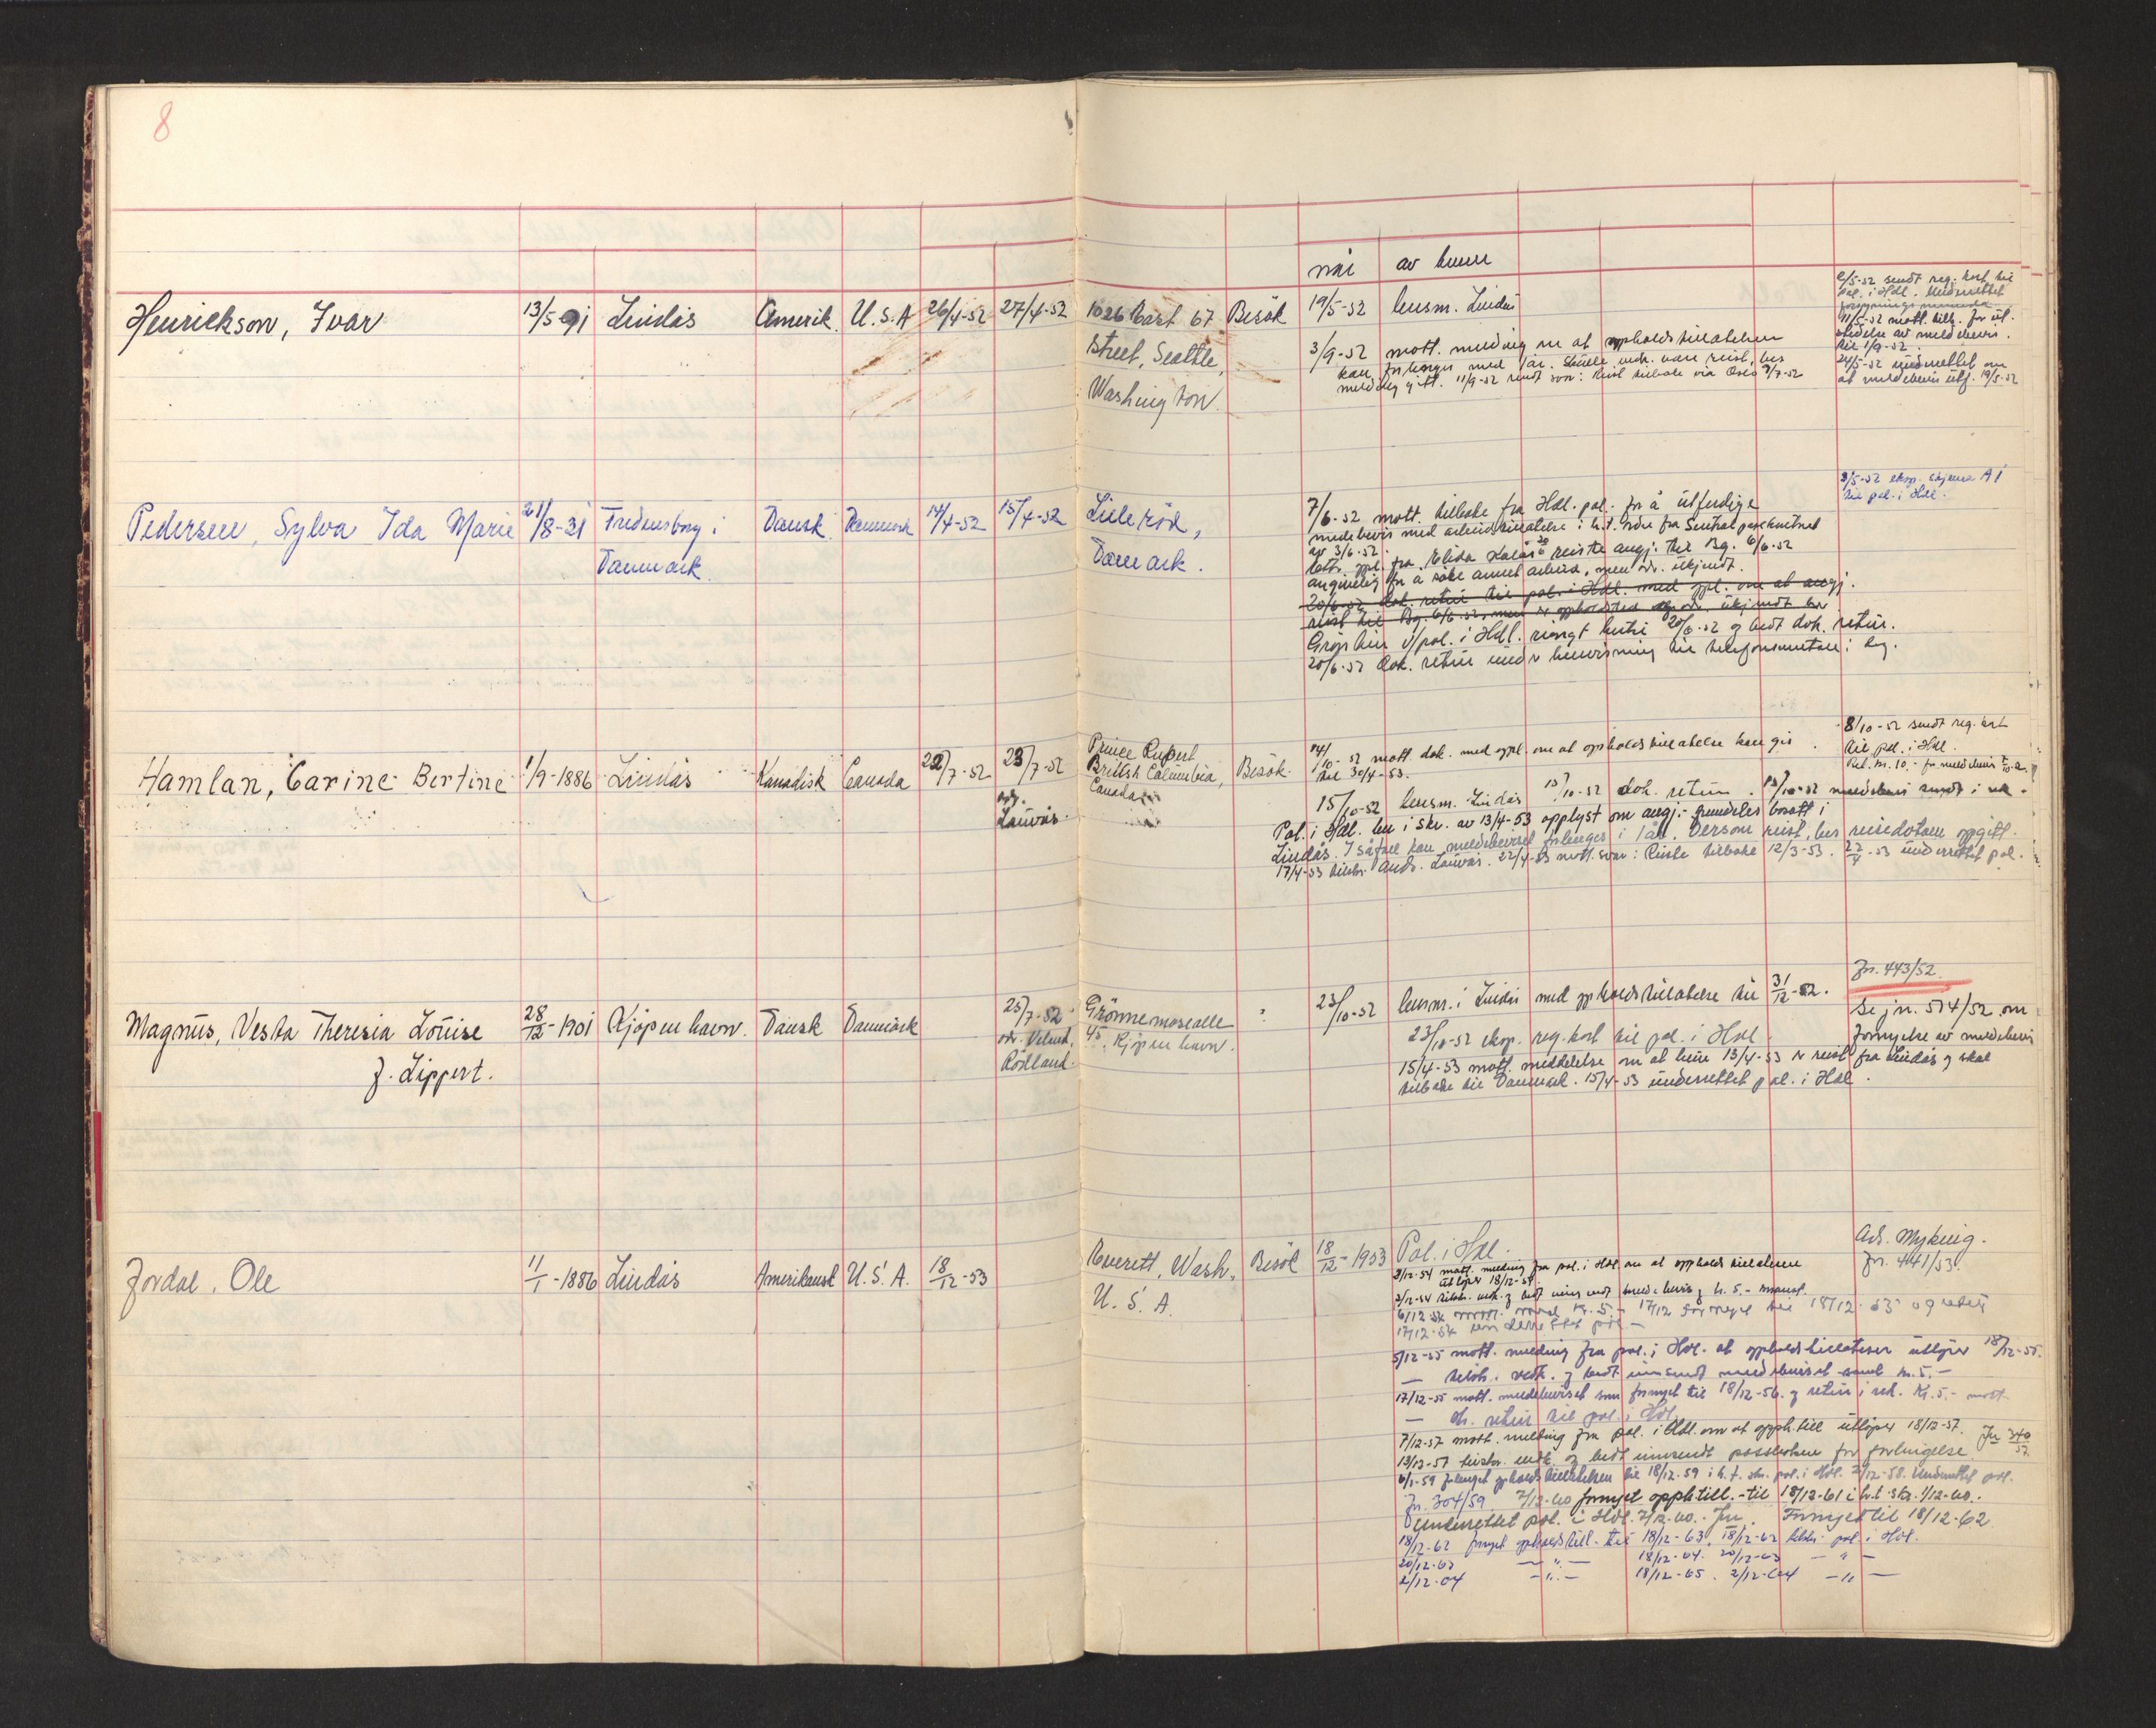 8
når av hvem
Henrickson, Ivar 13/5-91 Lindås Amerik. U.S.A 26/4-52 27/4-52 1026 East 67 Besök 19/5-52 lensm. Lindås
Street, Seattle,
Washington.
3/9-52 mott. melding om at oppholdstillatelsen
kan forlenges med 1 år. Skulle vedk. være reist, bes
melding gitt. 11/9-52 sendt svar: Reist tilbake via Oslo 9/7-52
2/5-52 sendt reg. kort til
pol. i Hdl. Underrettet
11/5-52 mott. till. for ut-
stedelse av meldebevis
til 1/9-52.
24/5-52 underrettet om
at meldebevis utf. 19/5-52
Pedersen, Sylva Ida Marie 21/8-31 Fredensborg i Dansk Danmark 14/4-52 15/4-52 Lilleröd,
Danmark. Danmark.
7/6-52 mott. tilbake fra Hdl. pol. for å utferdige
meldebevis med arbeidstillatelse i h.t. ordre fra Sentralpasskontoret
av 3/6-52.
reiste angj. til Bg. 6/6-52
angivelig for å söke annet arbeid, men adr. ukjendt.
20/6-52 dok. retur til pol. i Hdl. med oppl. om at angj.
reist til Bg. 6/6-52, men
v/pol. i Hdl. ringt hertil 20/6-52 og bedt dok. retur.
20/6-52 Dok. retur under henvisning til telefonsamtale i dag.
9/5-52 eksp. skjema A 1
til pol. i Hdl.
Hamlan, Carine Bertine 1/9-1886 Lindås Kanadisk Canada 22/7-52 23/7-52 Prince Rupert Besök.
British Columbia,
Canada
Lauvås.
14/10-52 mott. dok. med oppl. om at oppholdstillatelse kan gis
til 30/4-53.
15/10-52 lensm. Lindås 15/10-52 dok. retur. 15/10-52 meldebevis sendt i rek.
Pol. i Hdl. ber i skr. av 13/4-53 opplyst om angj. fremdeles bosatt i
Lindås. I såfall kan meldebeviset forlenges i 1 år. Dersom reist, bes reisedatoen oppgitt.
17/4-53 tilskr. Andr. Lauvås. 22/4-53 mott. svar: Reiste tilbake 12/3-53. 22/4-53 underrettet pol.
8/10-52 sendt reg. kort
til pol. i Hdl.
Magnus, Vesta Theresia Louise 28/12-1901 Kjöpenhavn. Dansk Danmark 25/7-52 Grönnemosealle
f. Lippert. 45, Kjöpenhavn.
23/10-52 lensm. i Lindås med oppholdstillatelse til 31/12-52.
23/10-52 eksp. reg. kort til pol. i Hdl
15/4-53 mott. meddelelse om at hun 13/4-53 er reist fra Lindås og skal
tilbake til Danmark. 15/4-53 underrettet pol. i Hdl.
Jn. 443/52
Se jn. 574/52 om
fornyelse av meldebevis
Jordal, Ole 11/1-1886 Lindås Amerikansk U.S.A. 18/12-53 Everett, Wash. Besök 18/12-1953 Pol. i Hdl.
U.S.A.
Adr. Myking.
Jn. 441/53.
2/12-54 mott. melding fra pol. i Hdl om at oppholdstillatelsen
utlöper 18/12-54.
17/12-54 underrettet pol.
5/12-55 mott. melding fra pol. i Hdl. at oppholdstillatelsen utlöper 18/12-55.
— tilskr. vedk. og bedt innsendt meldebeviset samt kr. 5.-
17/12-55 mott. meldebeviset som fornyet til 18/12-56 og retur i rek. Kr. 5.- mott.
— skr. retur til pol. i Hdl.
7/12-57 mott. melding fra pol. i Hdl. om at opph.till utlöper 18/12-57. Jn 340/57
13/12-57 tilskr. vedk. og bedt innsendt passboken for forlengelse
6/1-59 forlenget oppholdstillatelsen til 18/12-59 i h.t. skr. pol. i Hdl. Underrettet pol.
Jn. 304/59 7/12-60 fornyet opph.till. til 18/12-61 i h.t. skr. 1/12-60.
Underrettet pol. i Hdl. 7/12-60. Fornyet til 18/12-62
18/12-62 fornyet oppholdstill. til 18/12-63. 18/12-62 tilskr. pol. i Hdl.
20/12-63 — " — 18/12-64. 20/12-63 — " —
2/12-64 — " — 18/12-65. 2/12-64 — " —